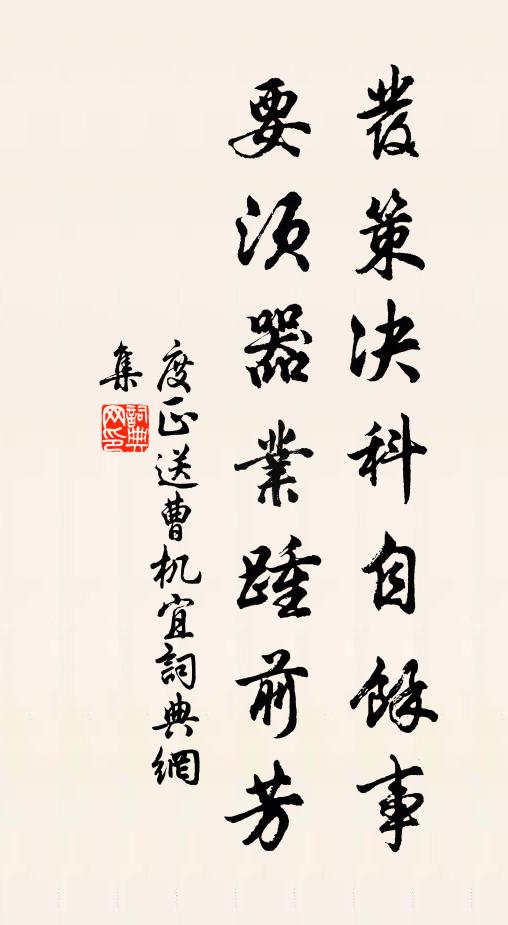 發策決科自餘事
要須器業踵前芳
度正送曹机宜詞典網
集
詞典
网印